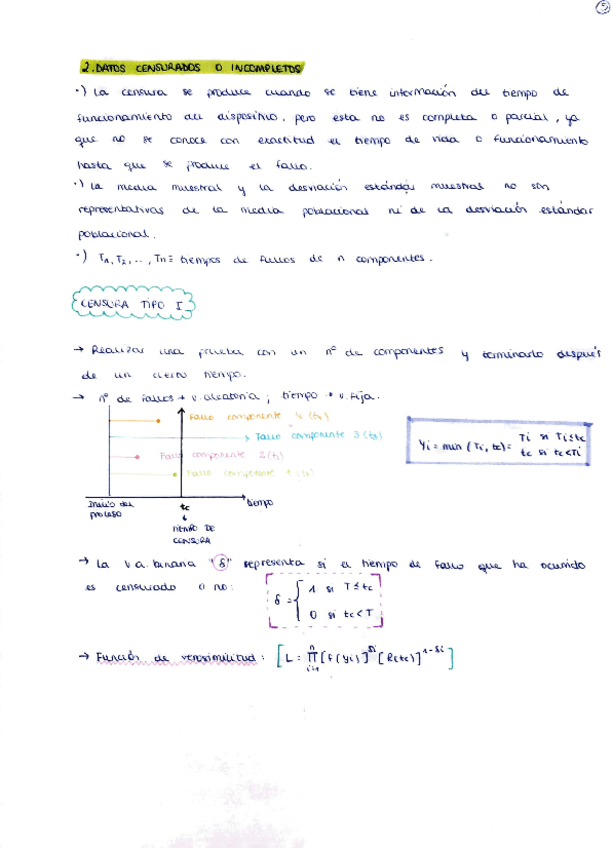 5
2. DATOS CENSURADOS O INCOMPLETOS
·) La censura se produce cuando se tiene información del tiempo de
funcionamiento del dispositivo, pero esta no es completa o parcial, ya
que no se conoce con exactitud el tiempo de vida o funcionamiento
hasta que se produce el fallo.
·) La media muestral y la desviación estándar muestral no son
representativas de la media poblacional ni de la desviación estándar
poblacional.
·) T1, T2, .., Tn ≡ tiempos de fallos de n componentes.
CENSURA TIPO I
→ Realizar una prueba con un nº de componentes y terminarlo después
de un cierto tiempo.
→ nº de fallos → v. aleatoria ; tiempo → v. fija.
Fallo componente 4 (t4)
Fallo componente 3 (t3)
Fallo componente 2 (t2)
Fallo componente 1 (t1)
Yi = min (Ti, tc) = Ti si Ti ≤ tc
tc si tc < Ti
Inicio del
proceso
tc
tiempo
TIEMPO DE
CENSURA
→ La v.a. binaria "δ" representa si el tiempo de fallo que ha ocurrido
es censurado o no:
δ = { 1 si T ≤ tc
0 si tc < T
→ Función de verosimilitud: [L = ∏ i=1 n [f(yi)]^δi [R(tc)]^1-δi]